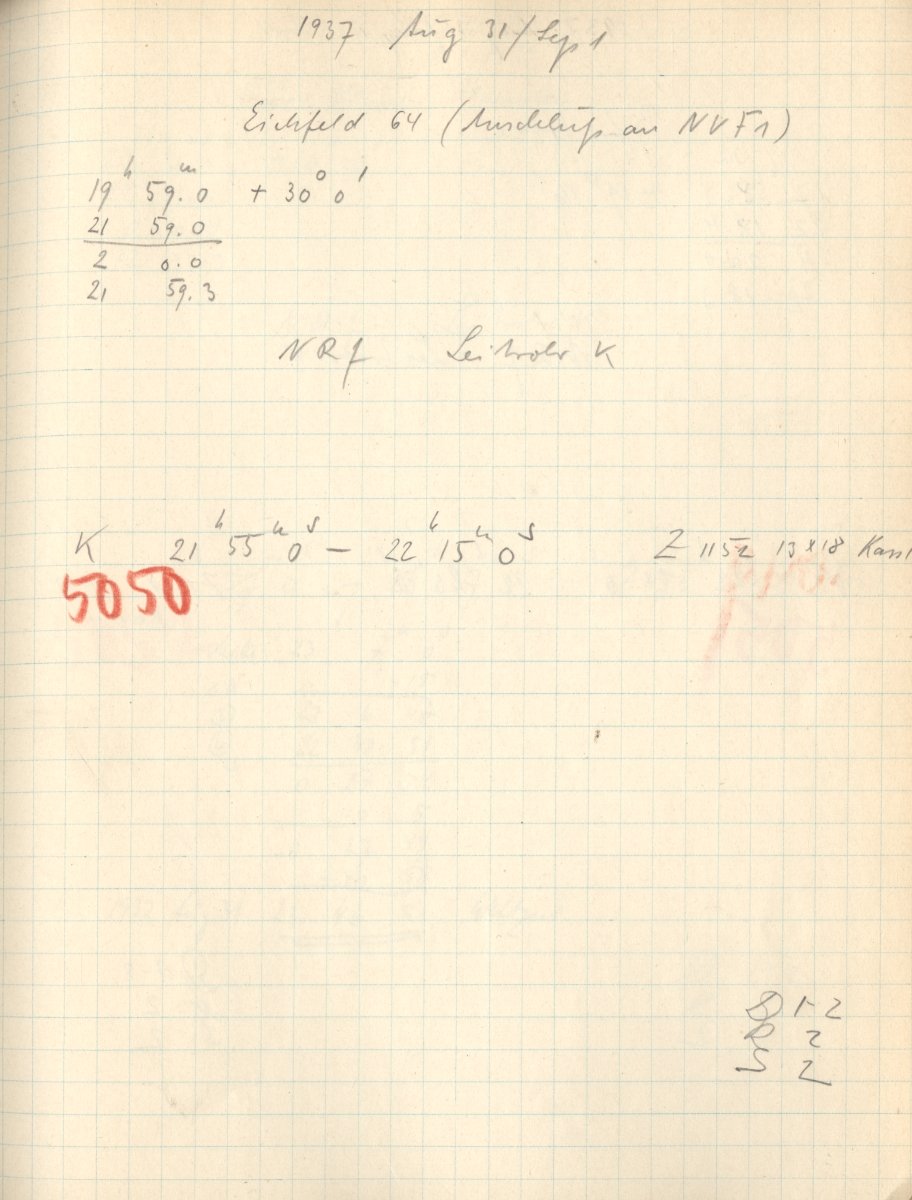 1937 Aug 31/Sep 1
Eichfeld 64 (Anschluß an NVF1)
19ʰ 59.ᵐ0 + 30° 0'
21 59.0
2 0.0
21 59.3
NRf Leitrohr K
K 21ʰ 55ᵐ 0ˢ — 22ʰ 15ᵐ 0ˢ Z 1152 13x18 Kass
5050
D 1-2
R 2
S 2